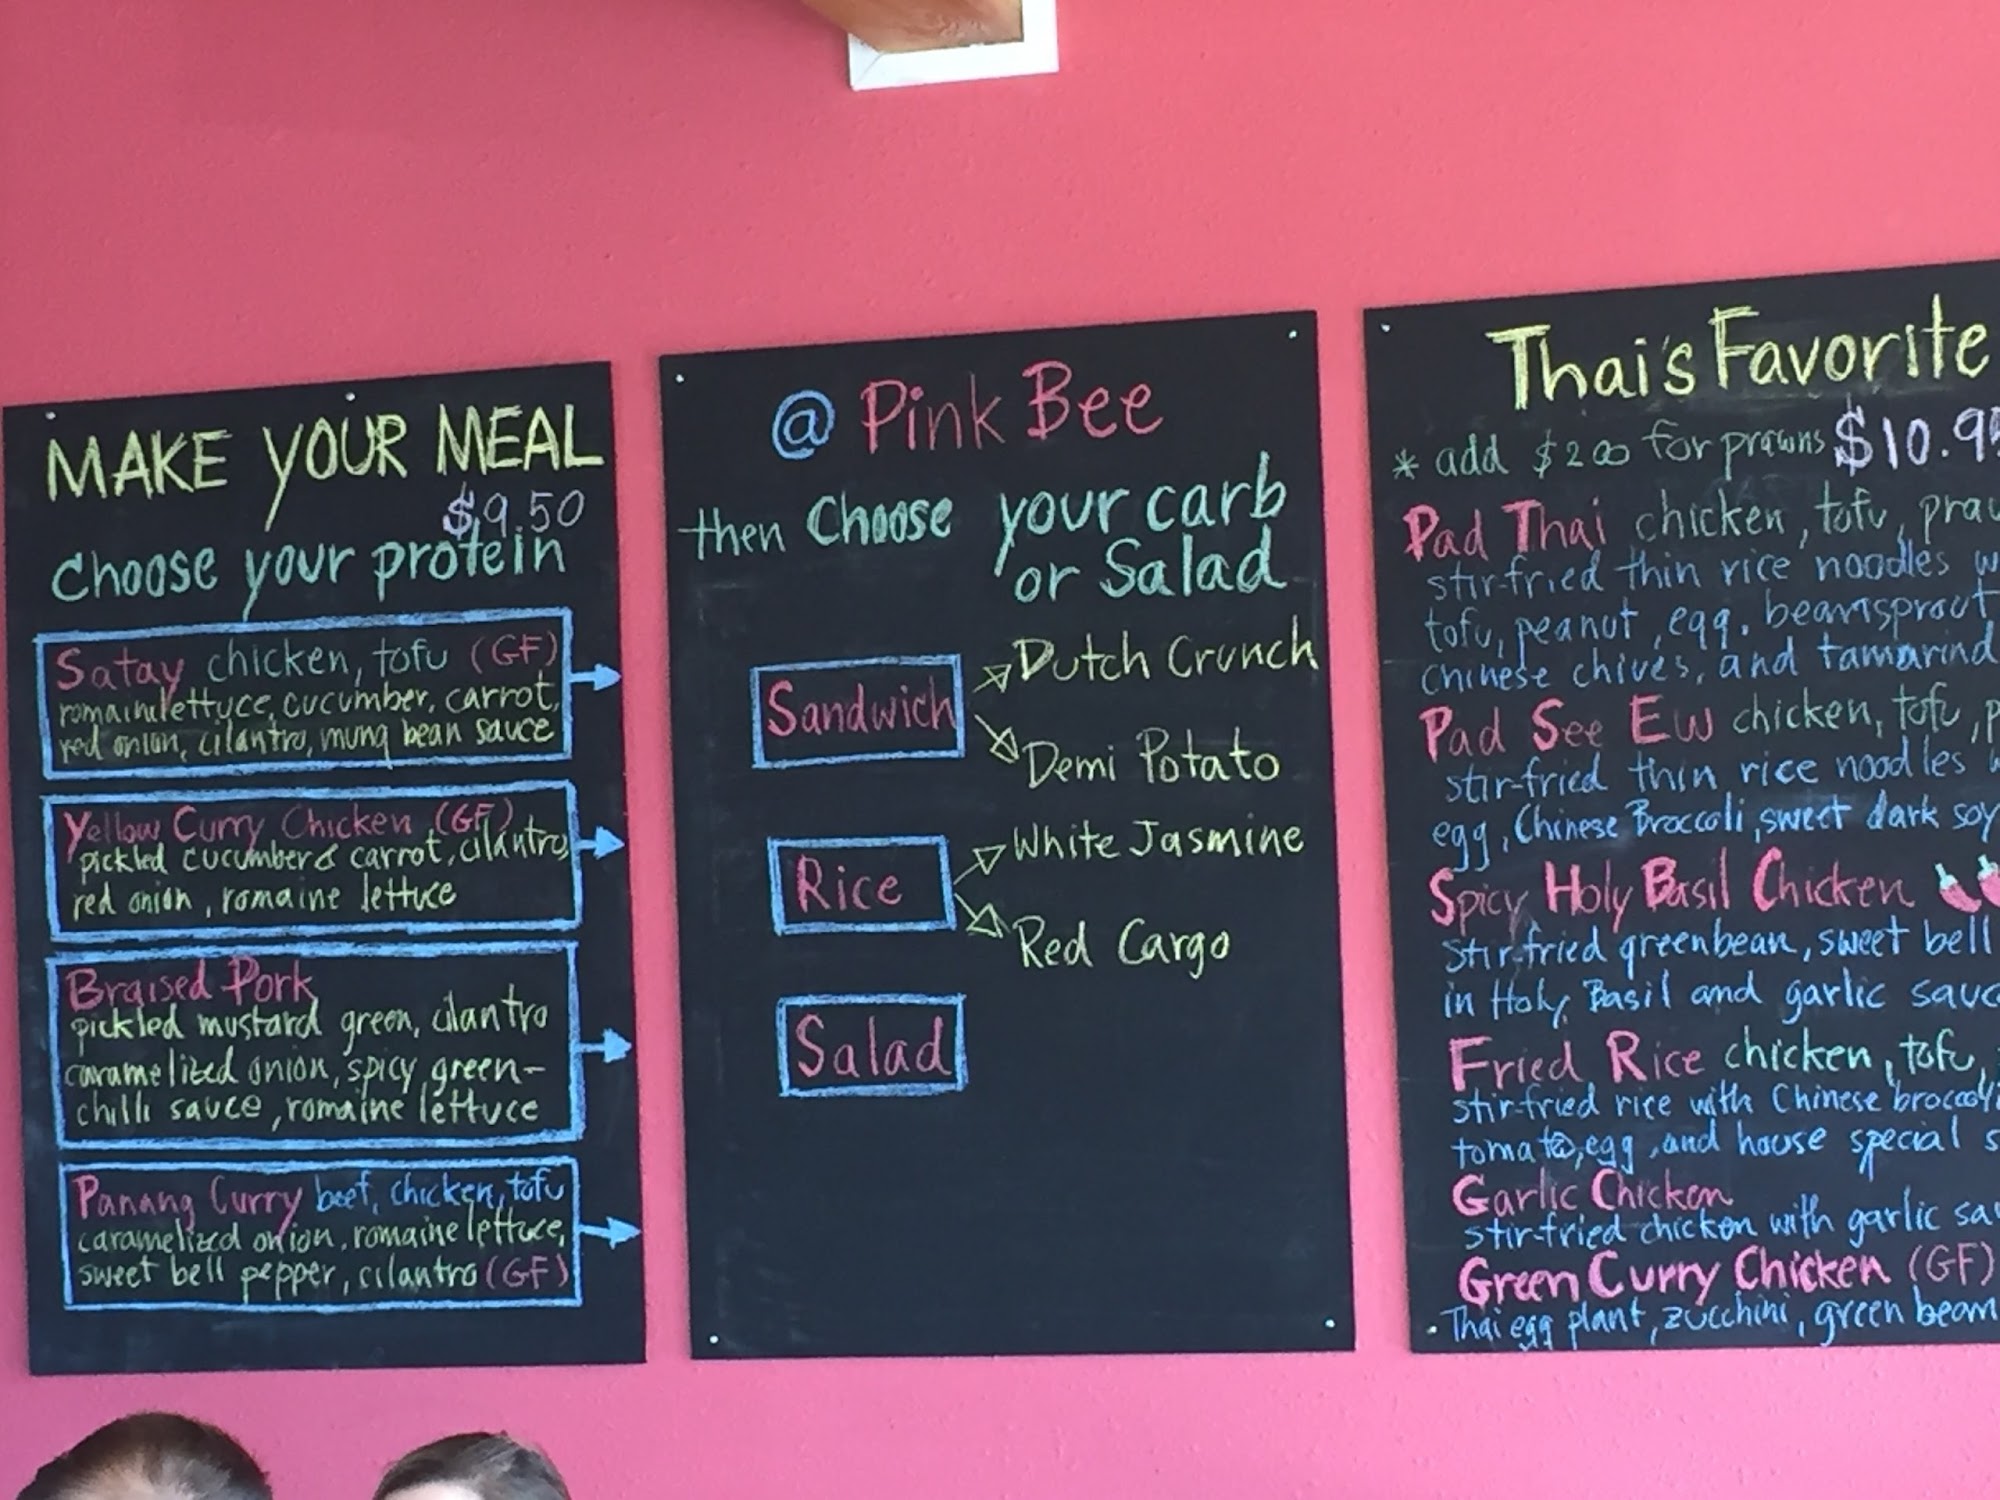 MAKE YOUR MEAL
$9.50
choose your protein
Satay chicken, tofu (GF)
romaine lettuce, cucumber, carrot,
red onion, cilantro, mung bean sauce
Yellow Curry Chicken (GF)
pickled cucumber & carrot, cilantro,
red onion, romaine lettuce
Braised Pork
pickled mustard green, cilantro
caramelized onion, spicy green-
chilli sauce, romaine lettuce
Panang Curry beef, chicken, tofu
caramelized onion, romaine lettuce,
sweet bell pepper, cilantro (GF)
@ Pink Bee
then Choose your carb
or Salad
Sandwich
Dutch Crunch
Demi Potato
Rice
White Jasmine
Red Cargo
Salad
Thai's Favorite
* add $2.00 for prawns $10.95
Pad Thai chicken, tofu,
stir-fried thin rice noodles
tofu, peanut, egg, beansprout
chinese chives, and tamarind
Pad See Ew chicken, tofu,
stir-fried thin rice noodles
egg, Chinese Broccoli, sweet dark soy
Spicy Holy Basil Chicken
Stir-fried greenbean, sweet bell
in Holy Basil and garlic
Fried Rice chicken, tofu,
stir-fried rice with Chinese broccoli
tomato, egg, and house special
Garlic Chicken
stir-fried chicken with garlic
Green Curry Chicken (GF)
Thai egg plant, zucchini, green bean